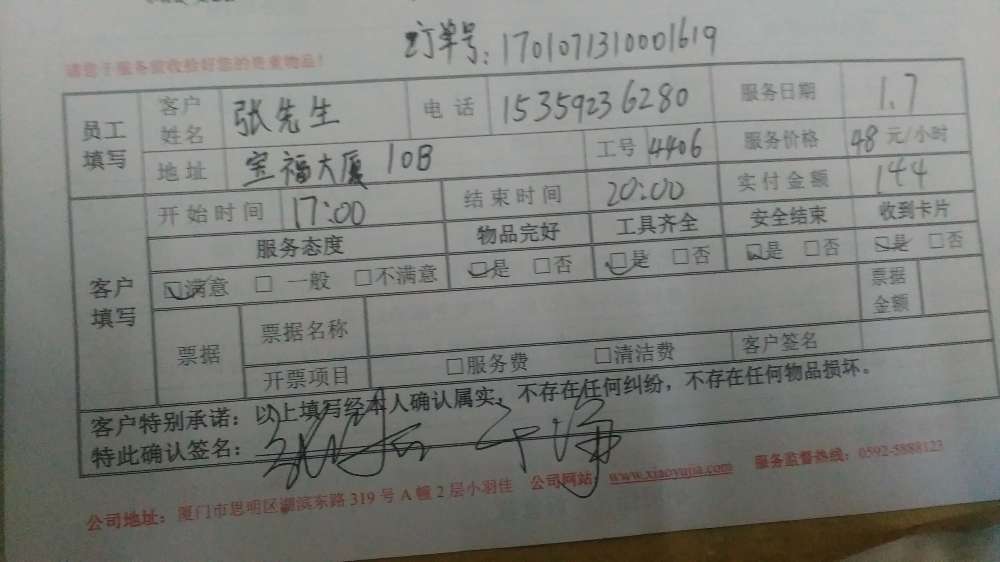 订单号:1701071310001619
请您于服务验收检好您的贵重物品!
员工填写 客户姓名 张先生 电话 15359236280 服务日期 1.7
地址 宝福大厦 10B 工号 4406 服务价格 48元/小时
客户填写 开始时间 17:00 结束时间 20:00 实付金额 144
服务态度 物品完好 工具齐全 安全结束 收到卡片
☑满意 □ 一般 □不满意 ☑是 □否 ☑是 □否 ☑是 □否 ☑是 □否
票据 票据名称 票据金额
开票项目 □服务费 □清洁费 客户签名
客户特别承诺:以上填写经本人确认属实,不存在任何纠纷,不存在任何物品损坏。
特此确认签名:
公司地址:厦门市思明区湖滨东路319号A幢2层小羽佳 公司网站:www.xiaoyujia.com 服务监督热线:0592-5888123